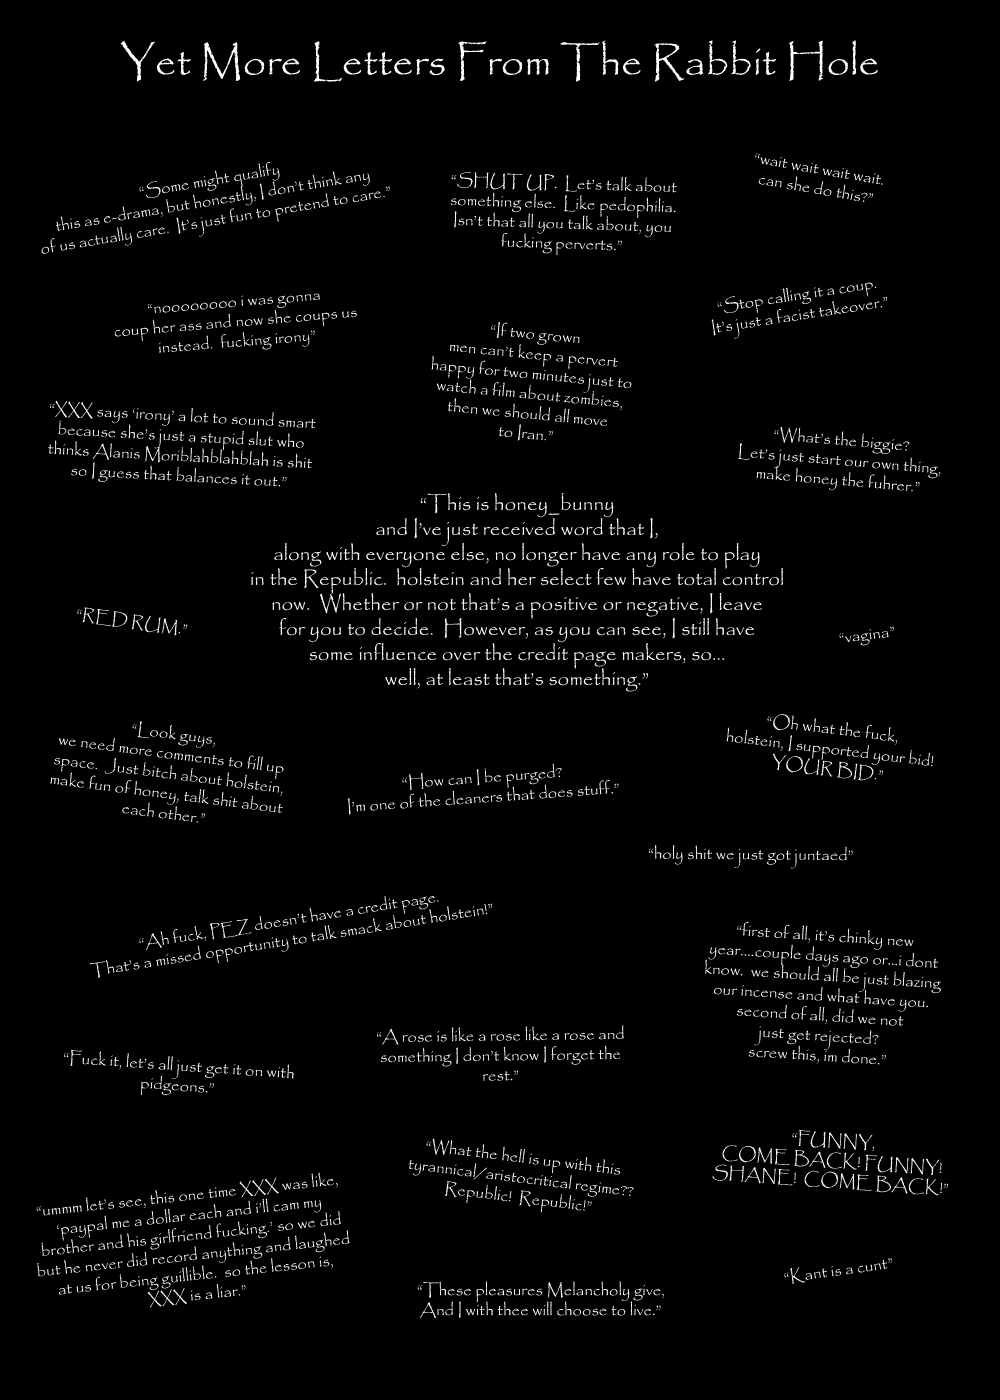 Yet More Letters From The Rabbit Hole
“Some might qualify
this as e-drama, but honestly, I don’t think any
of us actually care. It’s just fun to pretend to care.”
“SHUT UP. Let’s talk about
something else. Like pedophilia.
Isn’t that all you talk about, you
fucking perverts.”
“wait wait wait wait.
can she do this?”
“noooooooo i was gonna
coup her ass and now she coups us
instead. fucking irony”
“If two grown
men can’t keep a pervert
happy for two minutes just to
watch a film about zombies,
then we should all move
to Iran.”
“Stop calling it a coup.
It’s just a facist takeover.”
“XXX says ‘irony’ a lot to sound smart
because she’s just a stupid slut who
thinks Alanis Moriblahblahblah is shit
so I guess that balances it out.”
“What’s the biggie?
Let’s just start our own thing,
make honey the fuhrer.”
“This is honey_bunny
and I’ve just received word that I,
along with everyone else, no longer have any role to play
in the Republic. holstein and her select few have total control
now. Whether or not that’s a positive or negative, I leave
for you to decide. However, as you can see, I still have
some influence over the credit page makers, so...
well, at least that’s something.”
“RED RUM.”
“vagina”
“Look guys,
we need more comments to fill up
space. Just bitch about holstein,
make fun of honey, talk shit about
each other.”
“How can I be purged?
I’m one of the cleaners that does stuff.”
“Oh what the fuck,
holstein, I supported your bid!
YOUR BID.”
“holy shit we just got juntaed”
“Ah fuck, PEZ doesn’t have a credit page.
That’s a missed opportunity to talk smack about holstein!”
“first of all, it’s chinky new
year....couple days ago or...i dont
know. we should all be just blazing
our incense and what have you.
second of all, did we not
just get rejected?
screw this, im done.”
“Fuck it, let’s all just get it on with
pidgeons.”
“A rose is like a rose like a rose and
something I don’t know I forget the
rest.”
“What the hell is up with this
tyrannical/aristocritical regime??
Republic! Republic!”
“FUNNY,
COME BACK! FUNNY!
SHANE! COME BACK!”
“ummm let’s see, this one time XXX was like,
‘paypal me a dollar each and i’ll cam my
brother and his girlfriend fucking.’ so we did
but he never did record anything and laughed
at us for being guillible. so the lesson is,
XXX is a liar.”
“These pleasures Melancholy give,
And I with thee will choose to live.”
“Kant is a cunt”